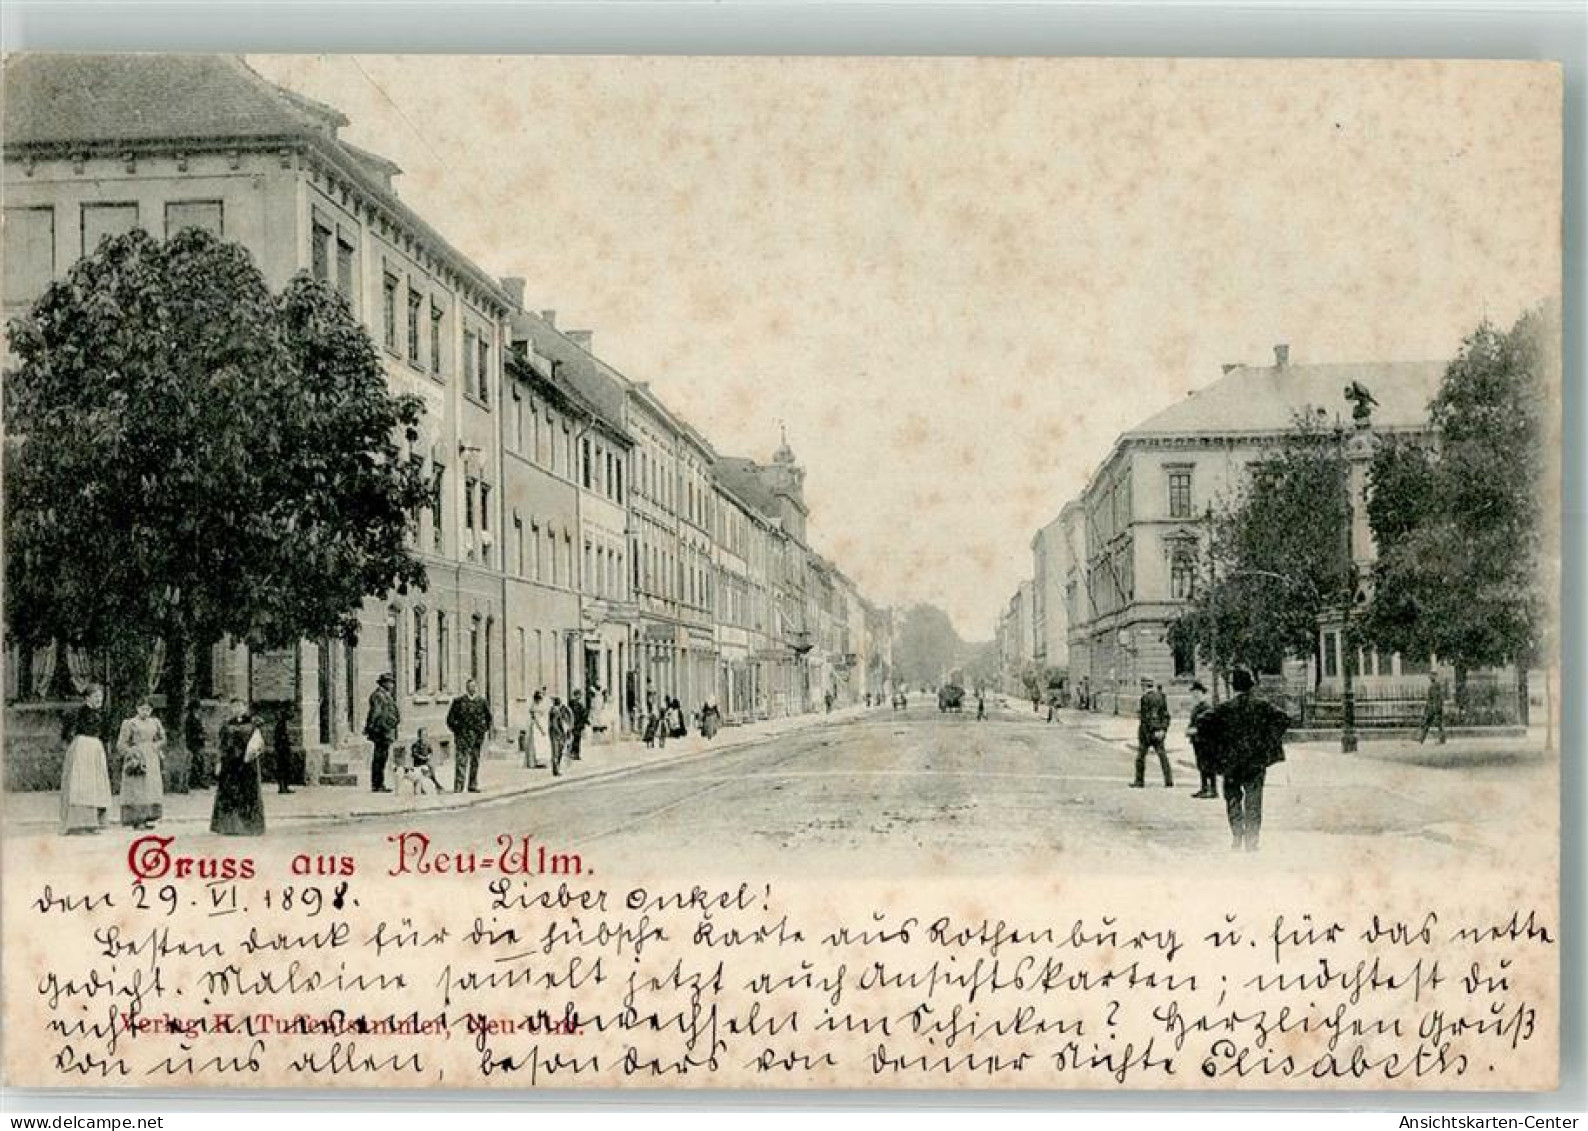 Gruss aus Neu-Ulm.
den 29. VI. 1898. Lieber Onkel!
Besten Dank für die hübsche Karte aus Rothenburg u. für das nette
Gedicht. Malvine sam̅elt jetzt auch Ansichtskarten; möchtest du
nicht ein wenig abwechseln im Schicken? Herzlichen Gruß
Verlag K. Tuffentsammer, Neu-Ulm.
von uns allen, besonders von deiner Nichte Elisabeth.
www.oldthing.com
Ansichtskarten-Center